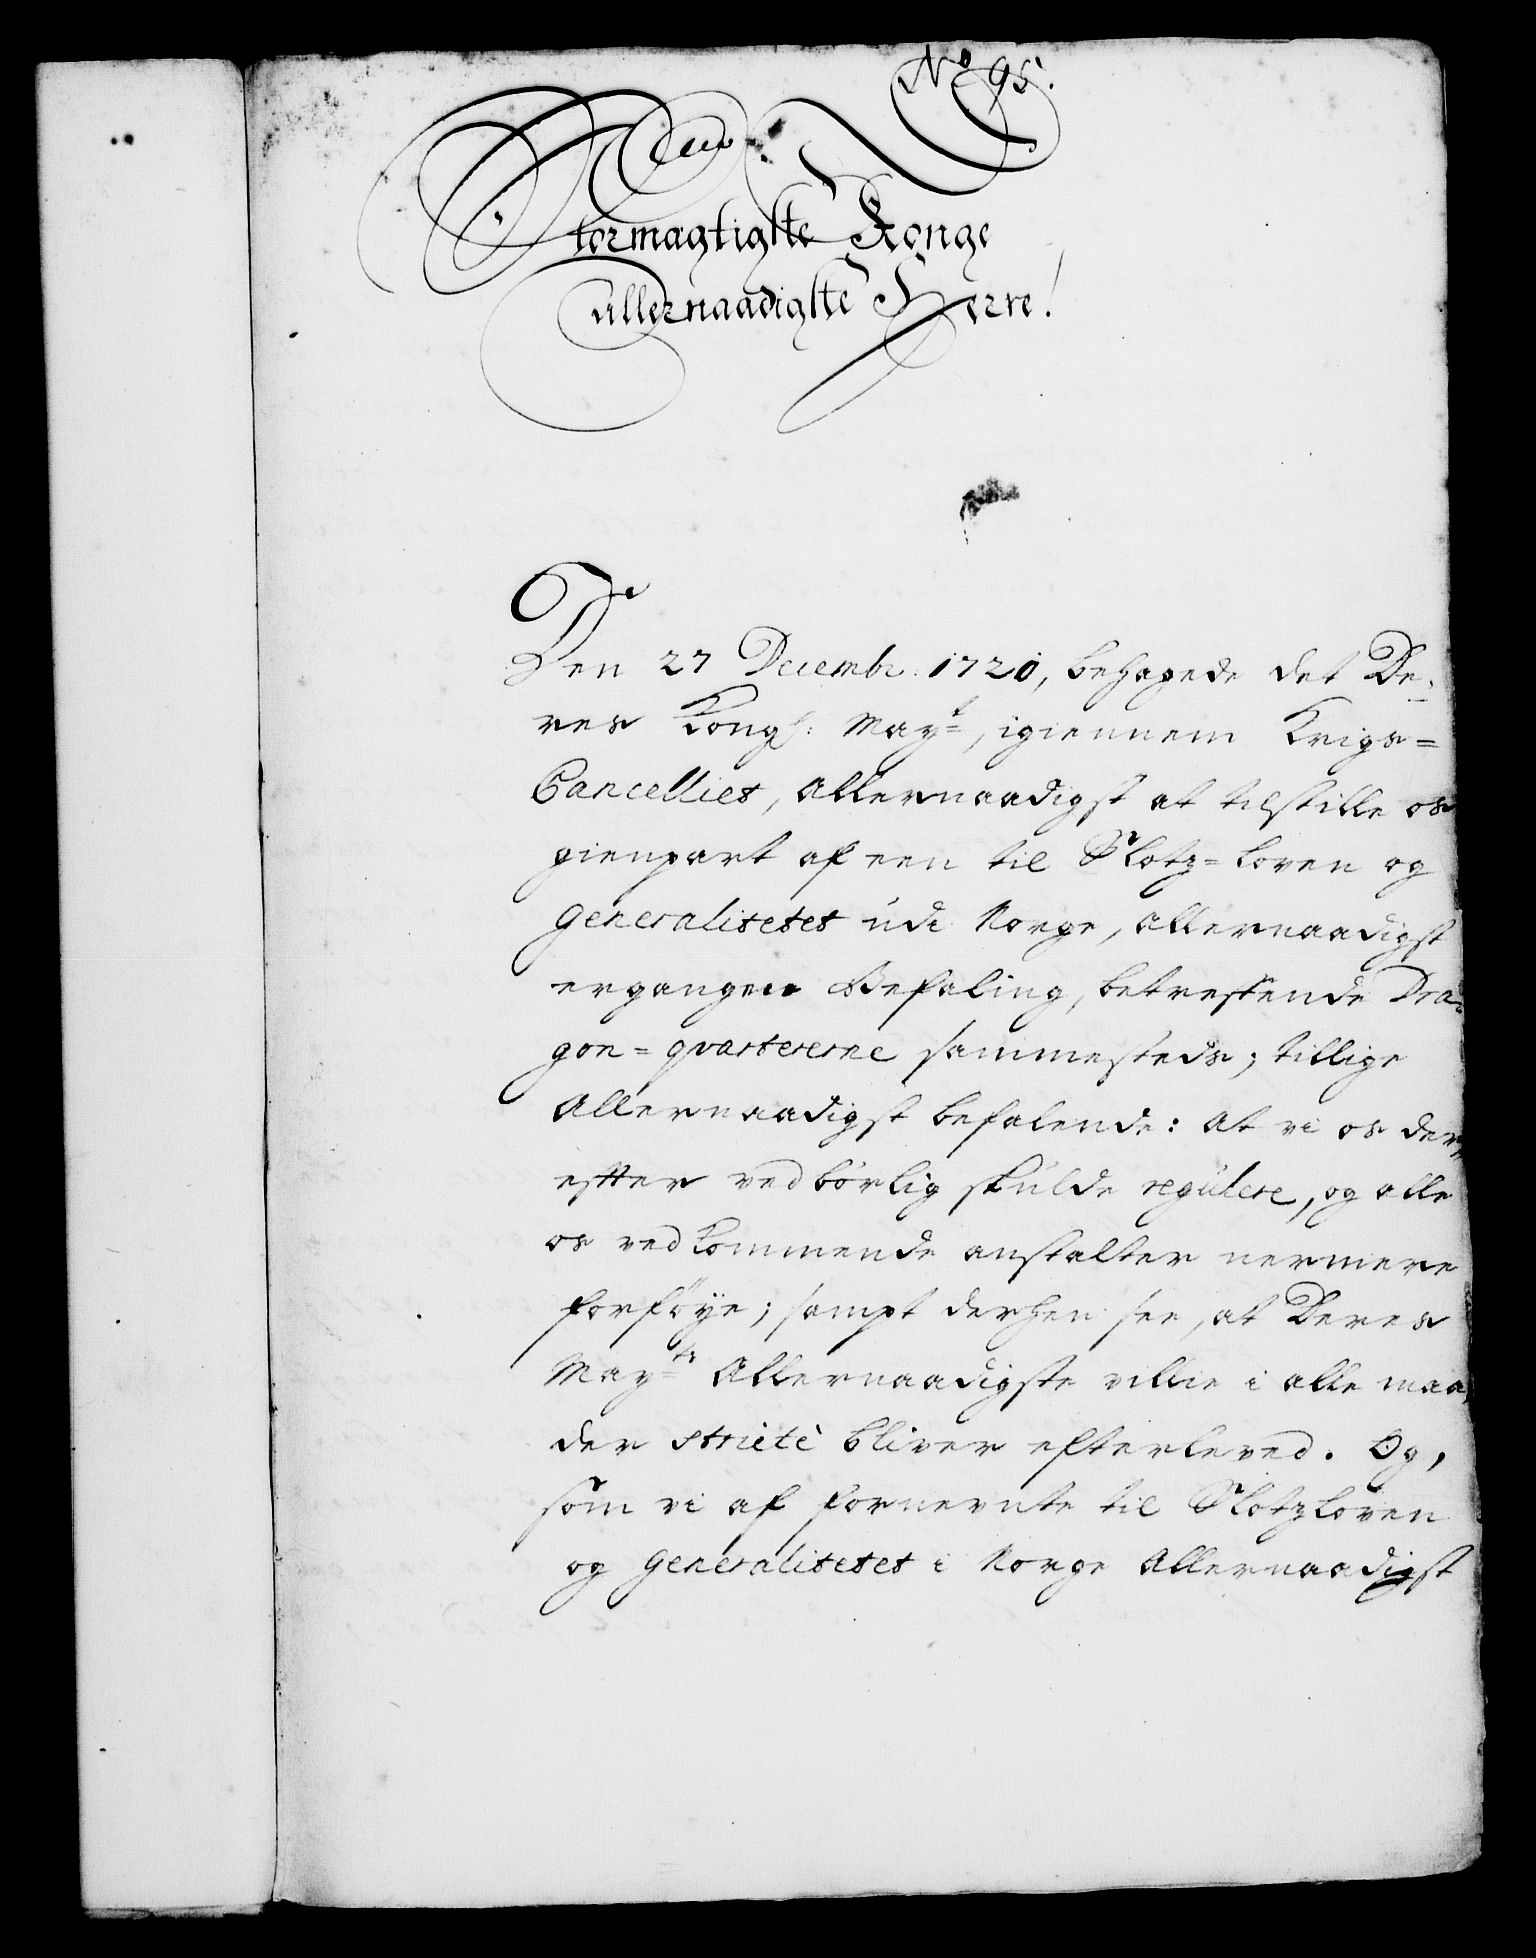 No 95.
Stormægtigste Konge
Allernaadigste Herre!
Den 27 Decembr. 1720, behagede det De-
res Kongl: May.t, igiennem Krigs=
Cancelliet, Allernaadigst at tilstille os
gienpart af een til Slotz=Loven og
Generalitetet udi Norge, Allernaadigst
ergangen Befaling, betreffende Dra-
gon=qvartererne sammesteds; tillige
Allernaadigst befalende: At vi os der-
effter vedbørlig skulde regulere, og alle
os ved kommende anstalter nermere
forføye; sampt derhen see, at Deres
May.ts Allernaadigste villie i alle maa-
der strictè bliver efterleved. Og,
som vi af fornevnte til Slotzloven
og Generalitetet i Norge Allernaadigst